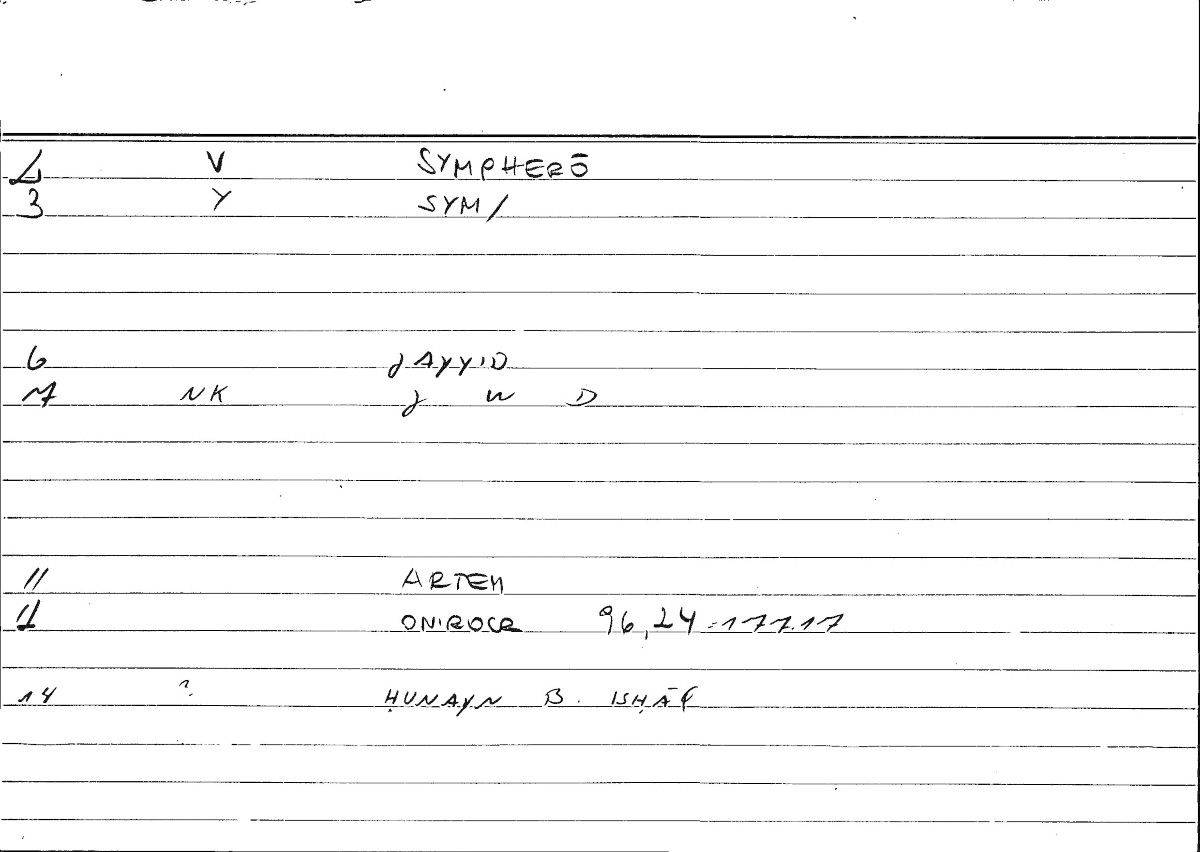 2 V SYMPHERŌ
3 Y SYM/
6 ǧAYYID
7 NK ǧ W D
11 ARTEM
ONIROCR 96,24 = 177.17
14 ? ḤUNAYN B. ISḤĀQ